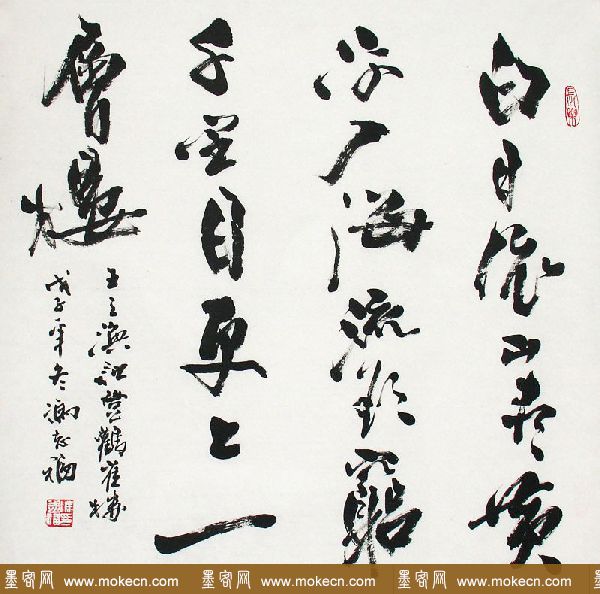 白日依山尽黄
河入海流欲窮
千里目更上一
層樓
王之涣詩登鸛雀樓
戊子年冬
墨客网 www.mokecn.com 墨客网 www.mokecn.com 墨客网 www.mokecn.com